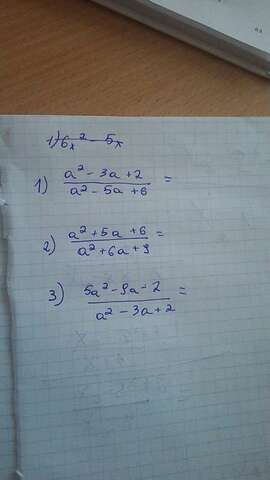 1) 6x² - 5x
1) (a² - 3a + 2)/(a² - 5a + 6) =
2) (a² + 5a + 6)/(a² + 6a + 9) =
3) (5a² - 9a - 2)/(a² - 3a + 2) =